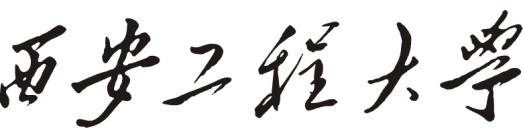 西安工程大学